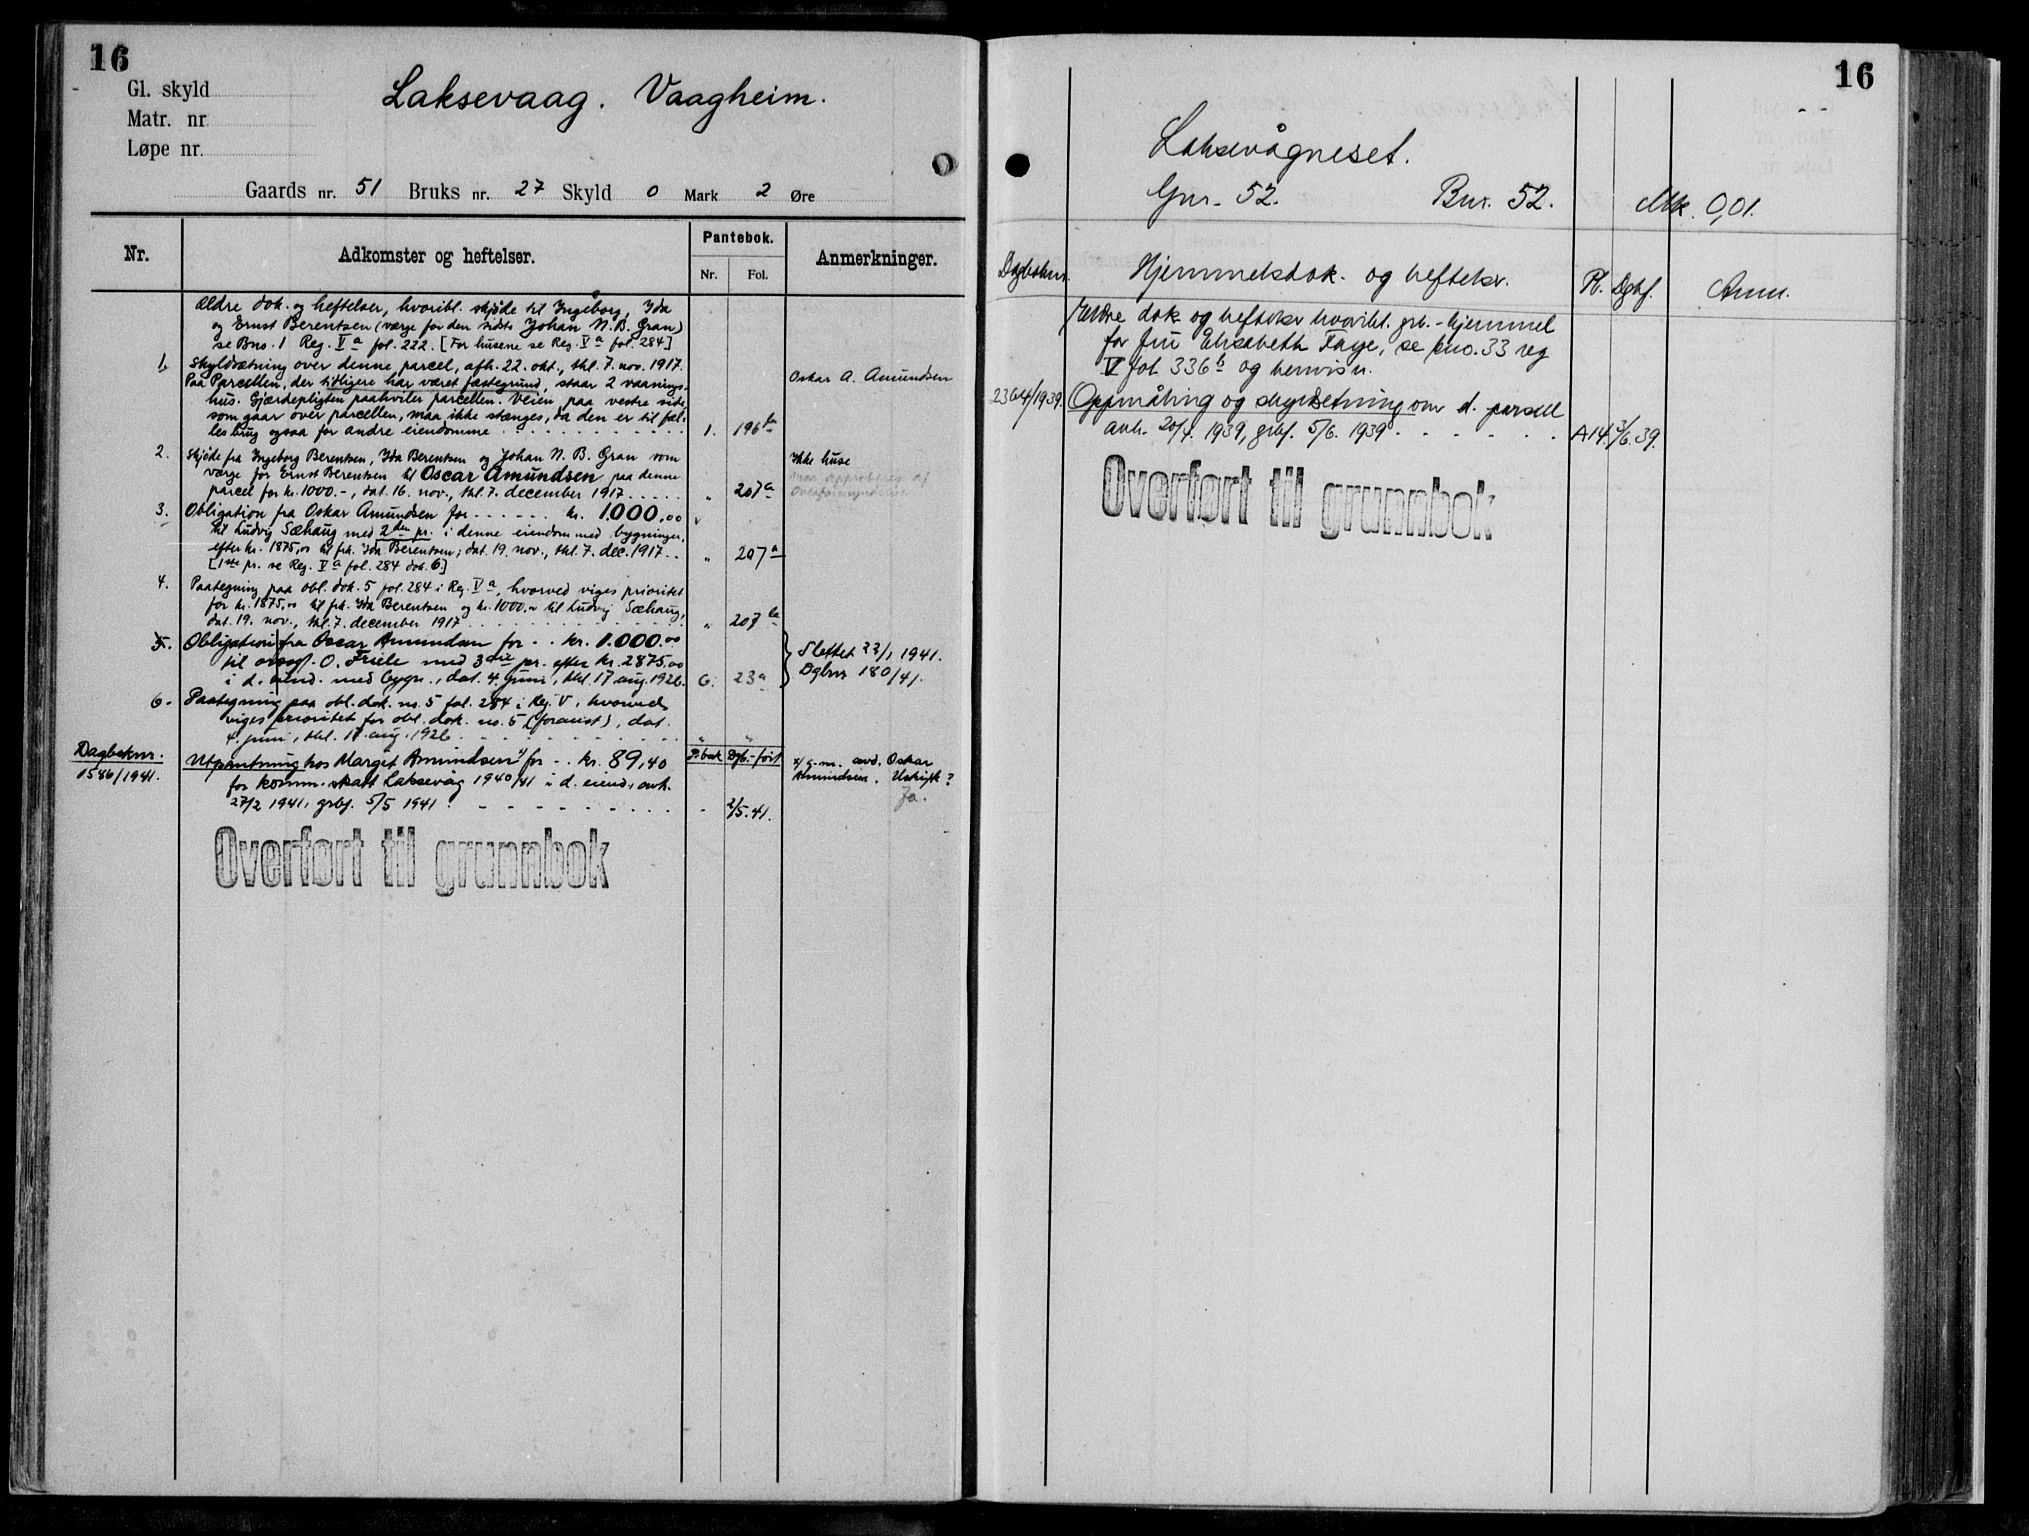 16
Gl. skyld
Matr. nr
Løpe nr.
Laksevaag. Vaagheim.
Gaards nr. 51 Bruks nr. 27 Skyld 0 Mark 2 Øre
Nr.
Adkomster og heftelser.
Pantebok.
Nr. Fol.
Anmerkninger.
Ældre dok. og heftelser, hvoribl. skjøde til Ingeborg, Ida
og Ernst Berentsen (værge for den sidste Johan N. B. Gran)
se Bno. 1 Reg. V a fol. 222. [For husene se Reg. V a fol. 284]
1. Skyldsætning over denne parcel, afh. 22. okt., thl. 7. nov. 1917.
Paa Parcellen, der tidligere har været fæstegrund, staar 2 vaanings- Oskar A. Amundsen
hus. Gjærdepligten paahviler parcellen. Veien paa vestre side
som gaar over parcellen, maa ikke stænges, da den er til fæl-
les brug ogsaa for andre eiendomme . . . . . . . . 1. 196 b
2. Skjøde fra Ingeborg Berentsen, Ida Berentsen og Johan N. B. Gran som Ikke huse
værge for Ernst Berentsen til Oscar Amundsen paa denne
parcel for kr. 1000.-, dat. 16. nov., thl. 7. december 1917 . . . . . " 207 a
3. Obligation fra Oskar Amundsen for . . . . . . kr. 1000.00
til Ludvig Sæhaug med 2den pr. i denne eiendom med bygninger,
efter kr. 1875,00 til frk. Ida Berentsen; dat. 19. nov., thl. 7. dec. 1917 . . " 207 a
[1ste pr. se Reg. V a fol. 284 dok. 6.]
4. Paategning paa obl. dok. 5 fol. 284 i Reg. V a, hvorved viges prioritet
for kr. 1875,00 til frk. Ida Berentsen og kr. 1000.00 til Ludvig Sæhaug,
dat. 19. nov., thl. 7. december 1917 . . . . . . " 207 b
5. Obligation fra Oscar Amundsen for . . kr. 1.000.00
til O. Friele med 3die pr. efter kr. 2875.00 Slettet 23/1 1941.
i d. eiend. med bygn., dat. 4. juni, thl. 17 aug. 1926. 6. 23 a Dgbnr 180/41.
6. Paategning paa obl. dok. no. 5 fol. 284 i Reg. V, hvorved
viges prioritet for obl. dok. no. 5 (foranst), dat.
4. juni, thl. 17. aug. 1926 . . . . . . " "
Dagboknr.
1586/1941.
P.bok Dgb.-ført
Utpantning hos Margit Amundsen x/ for . . kr. 89.40 x/ g.m. avd. Oskar
for komm.skatt Laksevåg 1940/41 i d. eiend., avh. Amundsen. Utskift?
27/2 1941, grbf. 5/5 1941 . - - - - - 2/5.41. Ja.
Overført til grunnbok
16
Laksevågneset.
Gnr. 52. Bnr. 52. Mk. 0,01.
Dagboknr. Hjemmelsdok. og heftelser. Pb. Dgbf. Anm.
Eldre dok og heftelser hvoribl. grb.-hjemmel
for fru Elisabeth Faye, se bno. 33 reg
V fol. 336 b og henvisn.
2364/1939. Oppmåling og skyldsetning over d. parsell
avh. 20/4. 1939, grbf. 5/6. 1939 . . . . . . A14. 3/6.39.
Overført til grunnbok